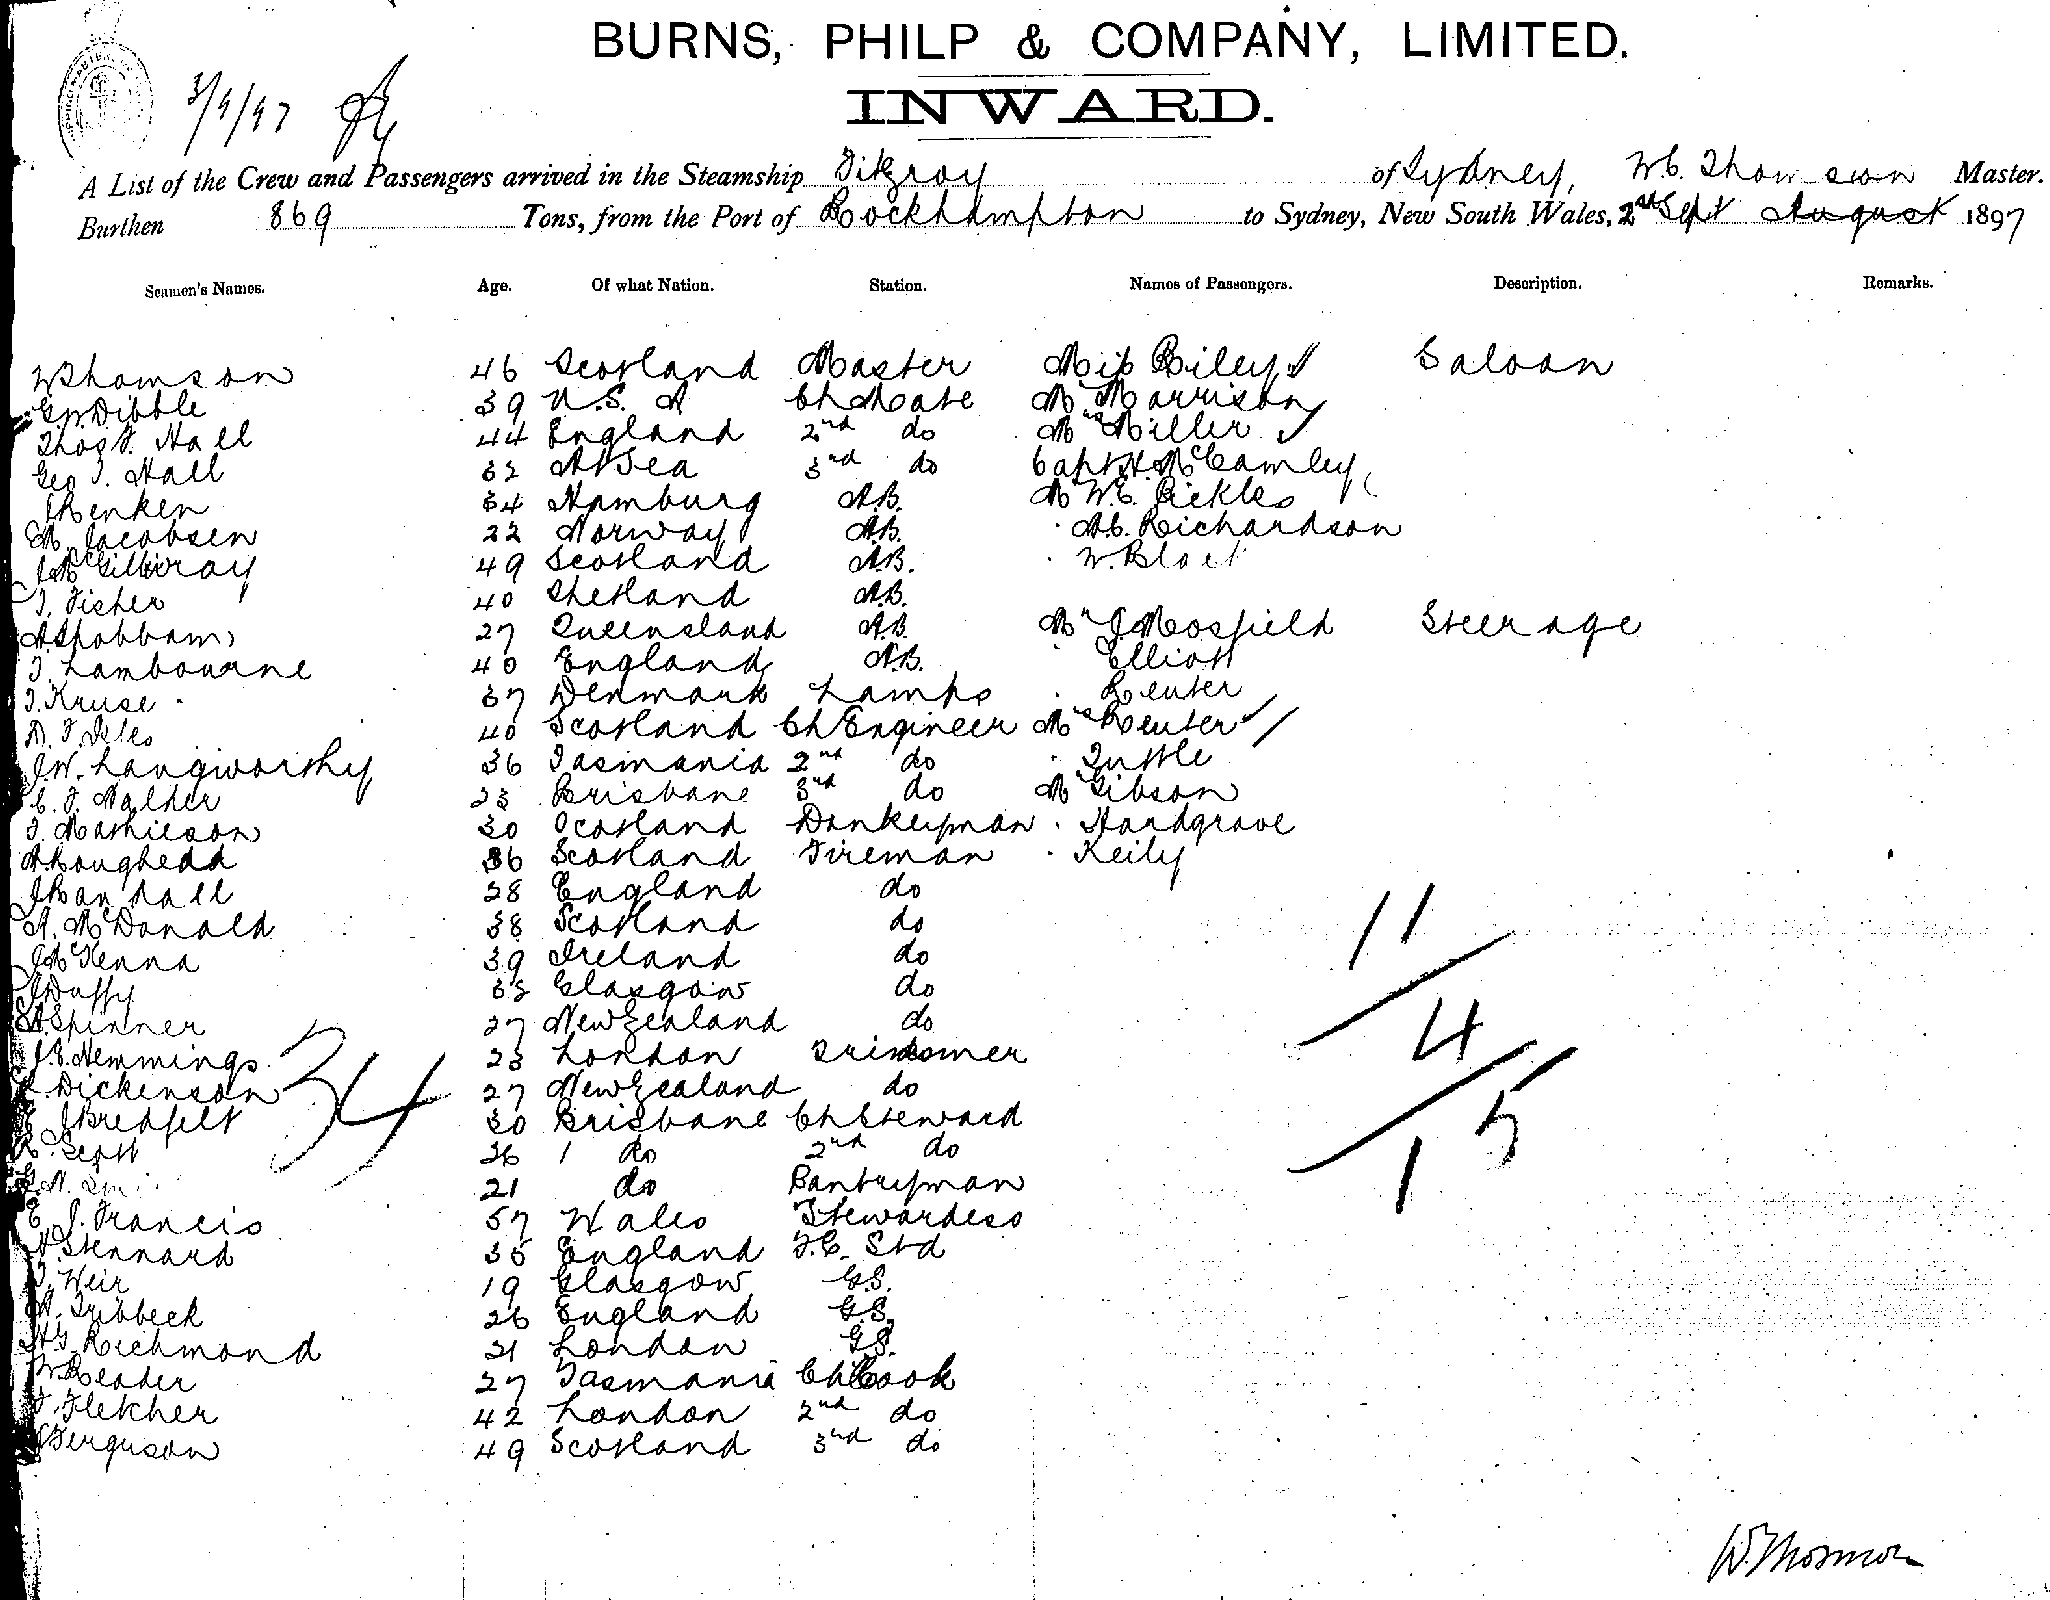 BURNS, PHILP & COMPANY, LIMITED.
INWARD.
3/9/97
A List of the Crew and Passengers arrived in the Steamship Fitzroy of Sydney, W.C. Thomson Master.
Burthen 869 Tons, from the Port of Rockhampton to Sydney, New South Wales, 2nd Sept August 1897
Seamen's Names. Age. Of what Nation. Station. Names of Passengers. Description. Remarks.
W Thomson 46 Scotland Master Miss Riley Saloon
G.W. Dibble 39 U.S. A Ch Mate Mr Morrison
Thos F. Hall 44 England 2nd do Mrs Miller
Geo J. Hall 32 At Sea 3rd do Capt H. McCamley
J Renken 34 Hamburg A.B. Mr W.E. Pickles
M. Jacobsen 22 Norway A.B. A.C. Richardson
J McGillivray 49 Scotland A.B. W.
J. Fisher 40 Shetland A.B.
27 Queensland A.B. Mr J. Mosfield Steerage
J. Lambourne 40 England A.B. Elliott
J. Kruse 37 Denmark Lamps Reuter
D. F. Iles 40 Scotland Ch Engineer Mrs Reuter
J.W. Langworthy 36 Tasmania 2nd do Tuttle
C. F. Nalder 23 Brisbane 3rd do Mr Gibson
J. Mathieson 30 Scotland Donkeyman Hardgrave
A Roughead 36 Scotland Fireman Keily
J Randall 28 England do
A. McDonald 38 Scotland do
J McKenna 39 Ireland do
J Duffy 33 Glasgow do
A Spinner 27 New Zealand do
J.E. Hemmings 23 London Trimmer
Dickenson 27 New Zealand do
J Bredfelt 30 Brisbane Ch Steward
R. Scott 26 do 2nd do
G.H. 21 do Pantryman
E. J. Francis 57 Wales Stewardess
H. Stennard 35 England F.C. Std
J. Weir 19 Glasgow G.S.
A. Tribbeck 26 England G.S.
H.G. Richmond 21 London G.S.
W. Reader 27 Tasmania Ch Cook
F. Fletcher 42 London 2nd do
J Ferguson 49 Scotland 3rd do
34
11
4
15
W. Thomson